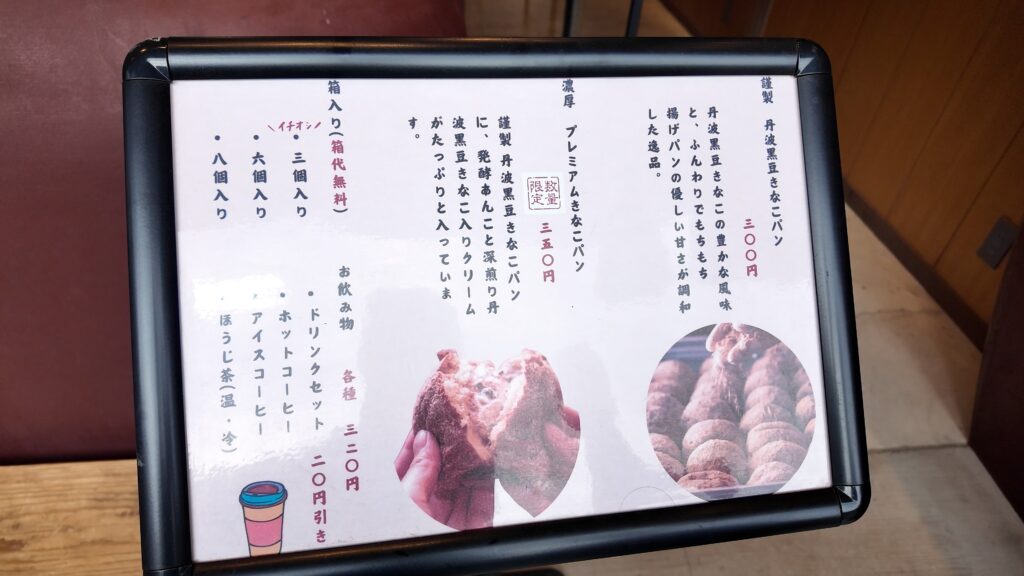 謹製 丹波黒豆きなこパン
三〇〇円
丹波黒豆きなこの豊かな風味
と、ふんわりでもちもち
揚げパンの優しい甘さが調和
した逸品。
濃厚 プレミアムきなこパン
数量
限定
三五〇円
謹製 丹波黒豆きなこパン
に、発酵あんこと深煎り丹
波黒豆きなこ入りクリーム
がたっぷりと入っていま
す。
箱入り(箱代無料)
\イチオシ/
・三個入り
・六個入り
・八個入り
お飲み物 各種 三二〇円
・ドリンクセット 二〇円引き
・ホットコーヒー
・アイスコーヒー
・ほうじ茶(温・冷)